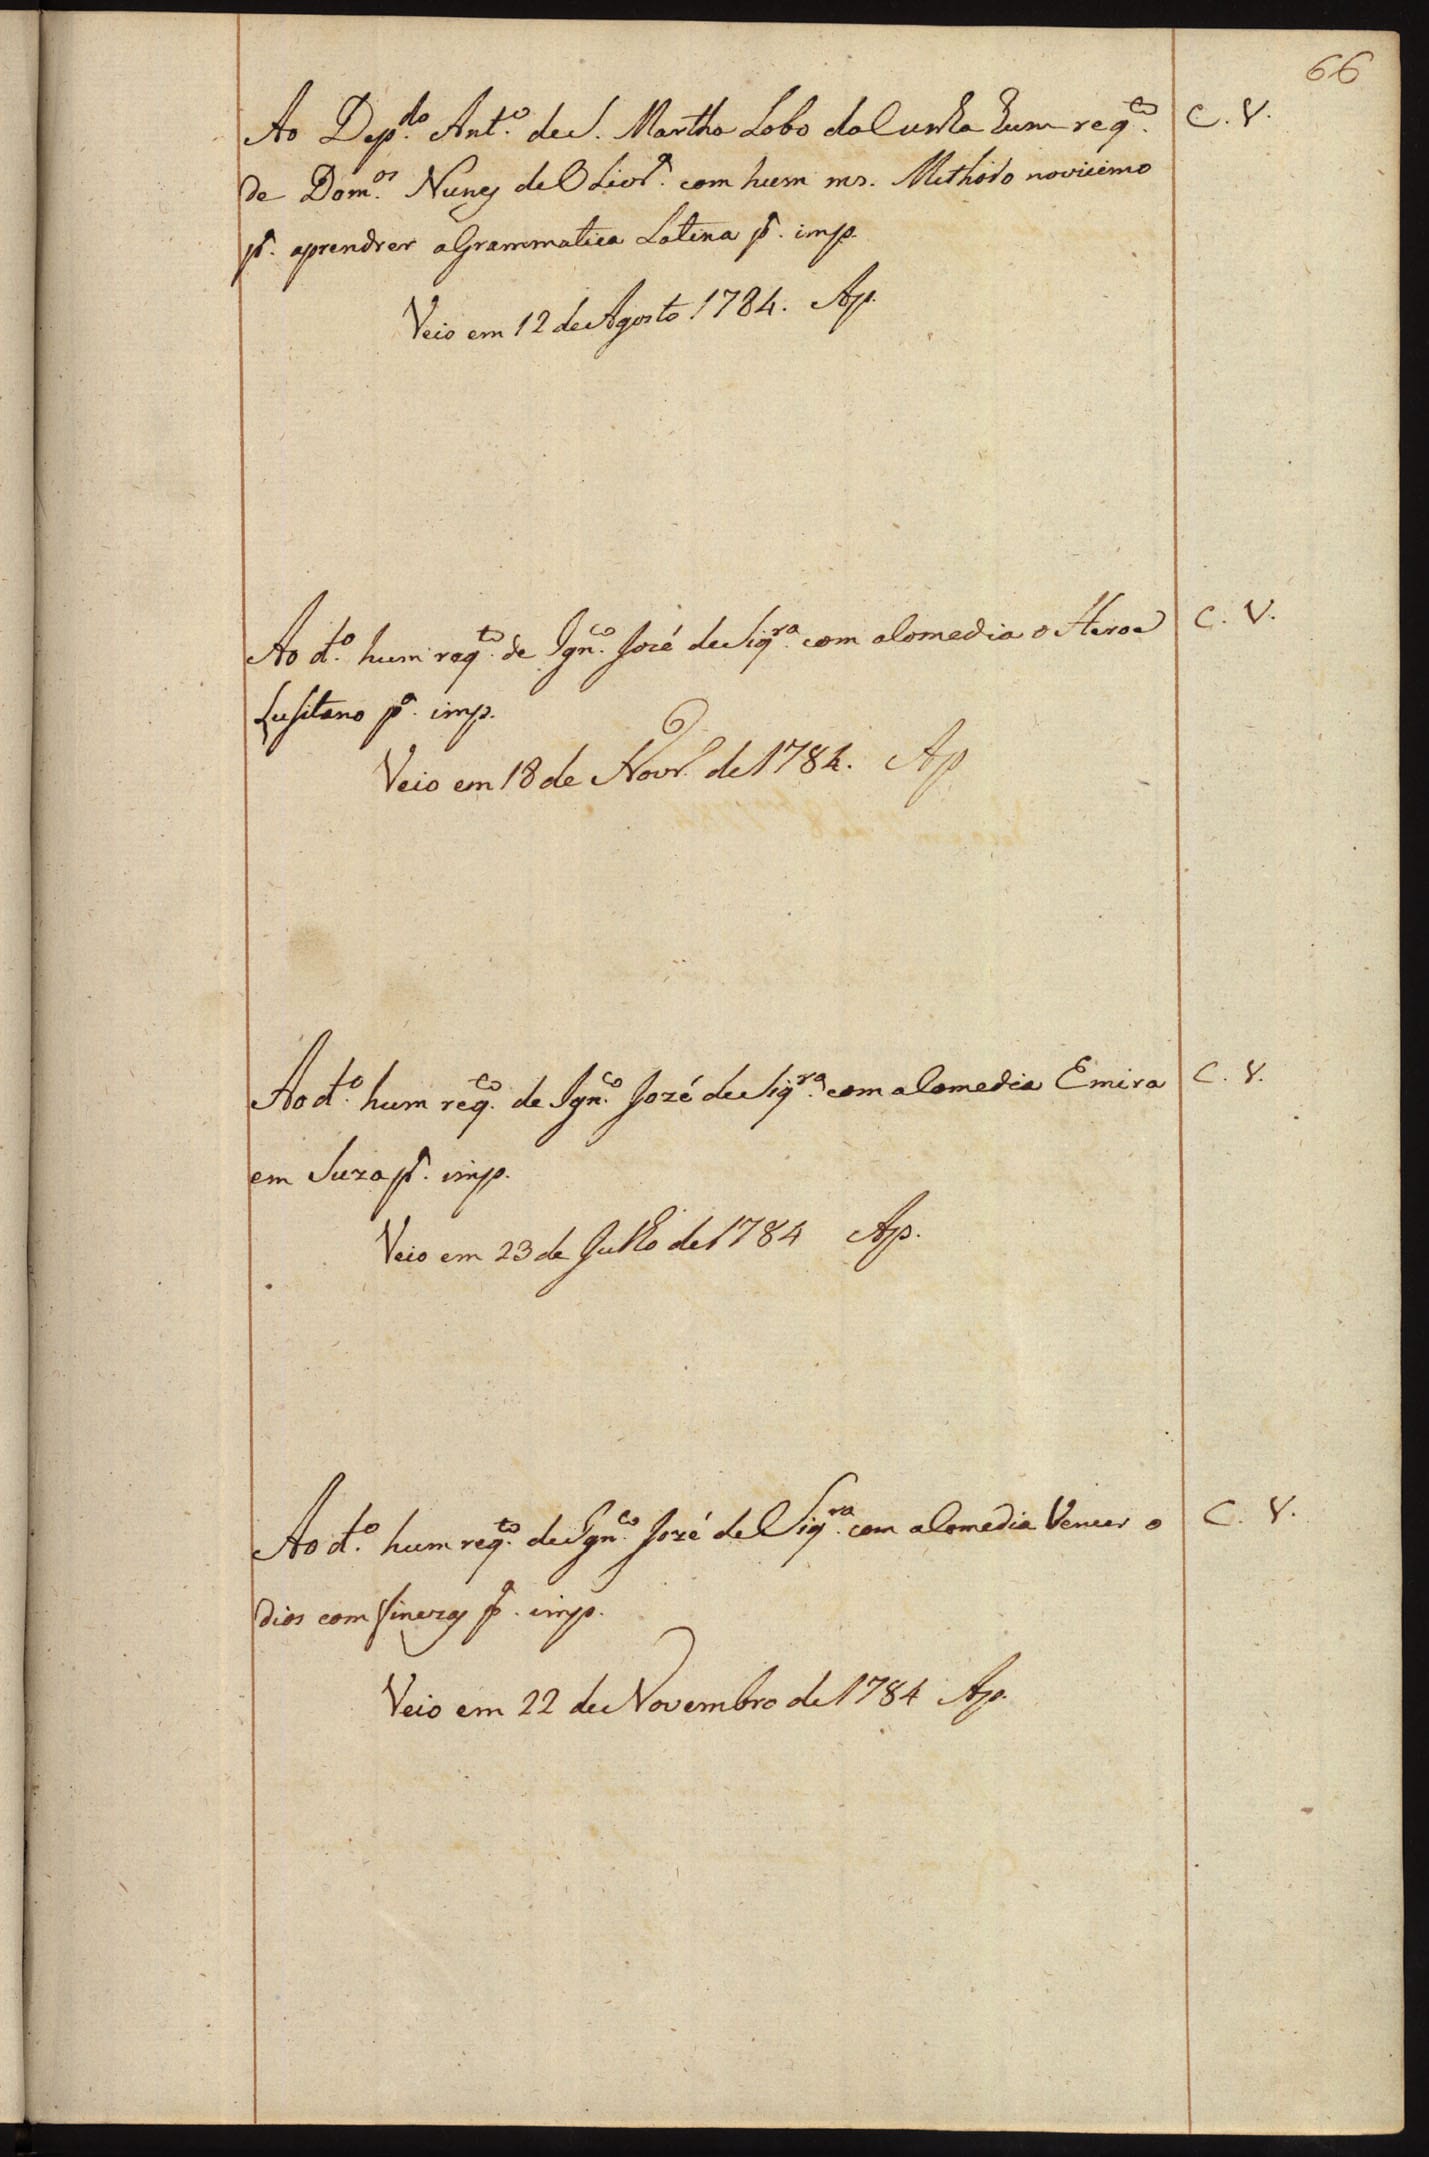 66
Ao Dep.do Ant.o de S. Martha Lobo da Cunha hum req.to C. V.
de Dom.os Nunes de Olivr.a com hum ms. Methodo novicimo
p.a aprendrer a Grammatica Latina p.a imp.
Veio em 12 de Agosto 1784. Ap.
Ao d.o hum req.to de Ign.co José de Siq.ra com a Comedia o Heroe C. V.
Lusitano p.a imp.
Veio em 18 de Novr.o de 1784. Ap
Ao d.o hum req.to de Ign.co Jozé de Siq.ra com a Comedia Emira C. V.
em Suza p.a imp.
Veio em 23 de Julho de 1784 Ap.
Ao d.o hum req.to de Ign.co Jozé de Siq.ra com a Comedia Vencer o C. V.
dios com finezas p.a imp.
Veio em 22 de Novembro de 1784 Ap.